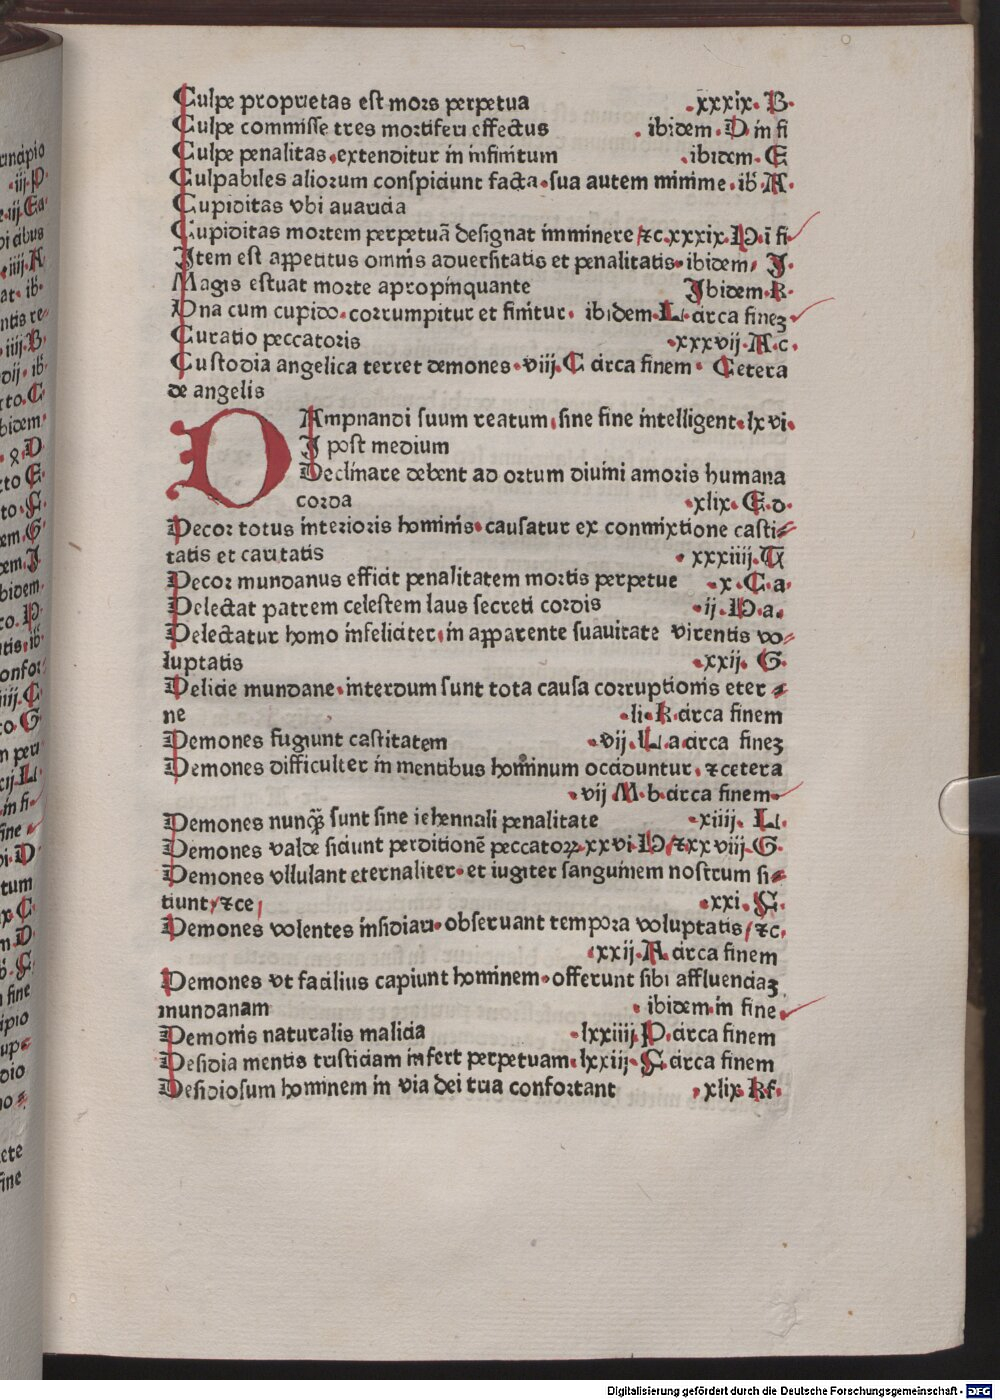 Culpe proprietas est mors perpetua .xxxix. B.
Culpe commisse tres mortiferi effectus . ibidem. D in fi
Culpe penalitas. extenditur in infinitum .ibidem. E
Culpabiles aliorum conspiciunt facta. sua autem minime. ib. A.
Cupiditas vbi auaricia
Cupiditas mortem perpetuā designat imminere ⁊c. xxxix. H. ī fi
Item est appetitus omnis aduersitatis et penalitatis. ibidem. I.
Magis estuat morte apropinquante Ibidem. K.
Vna cum cupido. corrumpitur et finitur. ibidem. L. circa fineꝫ
Curatio peccatoris .xxxvij. A. c.
Custodia angelica terret demones. viij. C circa finem. Cetera
de angelis
DAmpnandi suum reatum. sine fine intelligent. lxvi.
I post medium
Declinare debent ad ortum diuini amoris humana
corda .xlix. E. d.
Decor totus interioris hominis. causatur ex conmixtione casti⸗
tatis et caritatis . xxxiiij. T
Decor mundanus efficit penalitatem mortis perpetue .x. C. a.
Delectat patrem celestem laus secreti cordis .ij. H. a.
Delectatur homo infeliciter. in apparente suauitate virentis vo⸗
luptatis .xxij. G.
Delicie mundane. interdum sunt tota causa corruptionis eter⸗
ne .li. K. circa finem
Demones fugiunt castitatem .vij. L. a circa fineꝫ
Demones difficulter in mentibus hominum occiduntur. ⁊ cetera
.vij M. b. circa finem.
Demones nunq̄ꝫ sunt sine iehennali penalitate .xiiij. L.
Demones valde siciunt perditionē peccatoꝝ. xxvi. H/ ⁊ xxviij. G.
Demones vllulant eternaliter. et iugiter sanguinem nostrum si⸗
tiunt/ ⁊ce/ .xxi. S.
Demones volentes insidiari. obseruant tempora voluptatis/ ⁊c.
.xxij. A circa finem
Demones vt facilius capiunt hominem. offerunt sibi affluenciaꝫ
mundanam . ibidem. in fine.
Demonis naturalis malicia .lxxiiij. P. circa finem
Desidia mentis tristiciam infert perpetuam. lxxiij. S. circa finem
Desidiosum hominem in via dei tria confortant .xlix. K f.
Digitalisierung gefördert durch die Deutsche Forschungsgemeinschaft - DFG